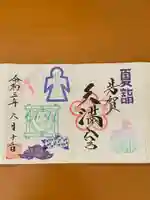 夏詣
芳賀
天満宮
令和三年八月十二日